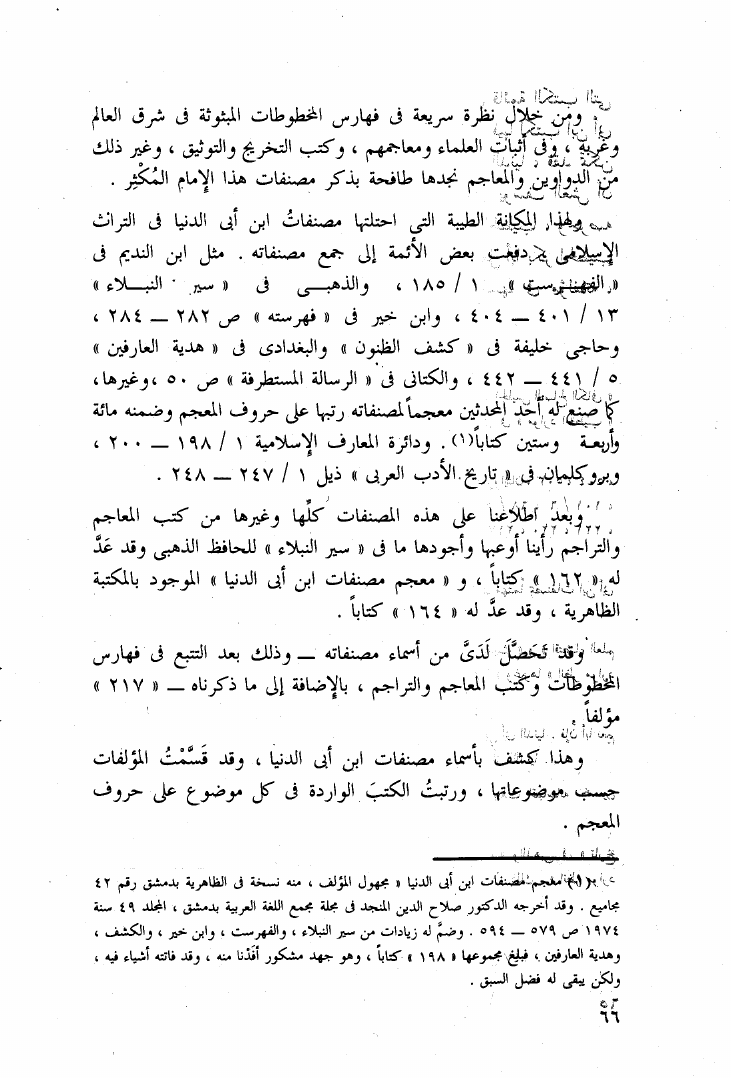 ومن خلال نظرة سريعة فى فهارس المخطوطات المبثوثة فى شرق العالم
وغربه ، وفى أثبات العلماء ومعاجمهم ، وكتب التخريج والتوثيق ، وغير ذلك
من الدواوين والمعاجم نجدها طافحة بذكر مصنفات هذا الإمام المُكْثِر .
ولهذا المكانة الطيبة التى احتلتها مصنفاتُ ابن أبى الدنيا فى التراث
الإسلامى دفعت بعض الأئمة إلى جمع مصنفاته . مثل ابن النديم فى
« الفهرست » ١ / ١٨٥ ، والذهبــى فى « سير النبـلاء »
١٣ / ٤٠١ — ٤٠٤ ، وابن خير فى « فهرسته » ص ٢٨٢ — ٢٨٤ ،
وحاجى خليفة فى « كشف الظنون » والبغدادى فى « هدية العارفين »
٥ / ٤٤١ — ٤٤٢ ، والكتانى فى « الرسالة المستطرفة » ص ٥٠ ،وغيرها،
كما صنع له أحد المحدثين معجماً لمصنفاته رتبها على حروف المعجم وضمنه مائة
وأربعة وستين كتاباً(١) . ودائرة المعارف الإسلامية ١ / ١٩٨ — ٢٠٠ ،
وبروكلمان فى « تاريخ الأدب العربى » ذيل ١ / ٢٤٧ — ٢٤٨ .
وبعد اطلاعنا على هذه المصنفات كلِّها وغيرها من كتب المعاجم
والتراجم رأينا أوعبها وأجودها ما فى « سير النبلاء » للحافظ الذهبى وقد عَدَّ
له « ١٦٢ » كتاباً ، و « معجم مصنفات ابن أبى الدنيا » الموجود بالمكتبة
الظاهرية ، وقد عدَّ له « ١٦٤ » كتاباً .
وقد تَحَصَّلَ لَدَىَّ من أسماء مصنفاته — وذلك بعد التتبع فى فهارس
المخطوطات وكتب المعاجم والتراجم ، بالإضافة إلى ما ذكرناه — « ٢١٧ »
مؤلفاً .
وهذا كشف بأسماء مصنفات ابن أبى الدنيا ، وقد قَسَّمْتُ المؤلفات
حسب موضوعاتها ، ورتبتُ الكتبَ الواردة فى كل موضوع على حروف
المعجم .
(١) معجم مصنفات ابن أبى الدنيا « مجهول المؤلف ، منه نسخة فى الظاهرية بدمشق رقم ٤٢
مجاميع . وقد أخرجه الدكتور صلاح الدين المنجد فى مجلة مجمع اللغة العربية بدمشق ، المجلد ٤٩ سنة
١٩٧٤ ص ٥٧٩ — ٥٩٤ . وضمَّ له زيادات من سير النبلاء ، والفهرست ، وابن خير ، والكشف ،
وهدية العارفين ، فبلغ مجموعها « ١٩٨ » كتاباً ، وهو جهد مشكور أفَدْنا منه ، وقد فاتته أشياء فيه ،
ولكن يبقى له فضل السبق .
٦٦